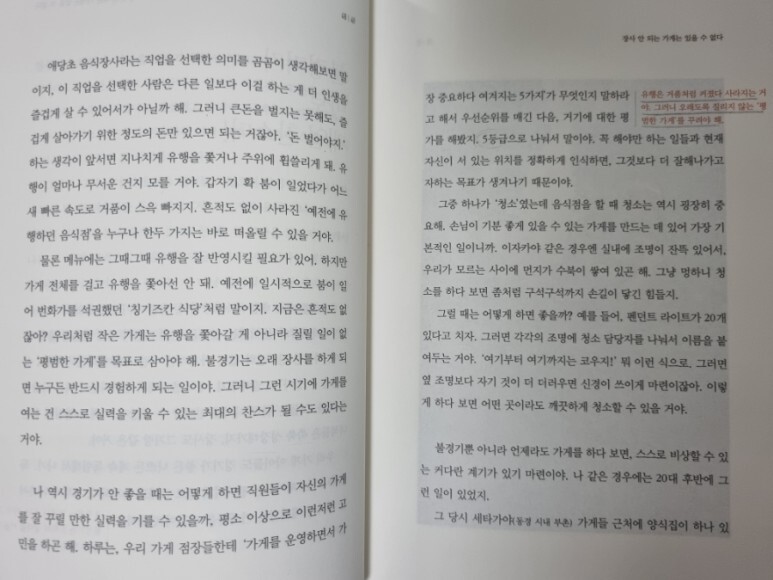 애당초 음식장사라는 직업을 선택한 의미를 곰곰이 생각해보면 말
이지, 이 직업을 선택한 사람은 다른 일보다 이걸 하는 게 더 인생을
즐겁게 살 수 있어서가 아닐까 해. 그러니 큰돈을 벌지는 못해도, 즐
겁게 살아가기 위한 정도의 돈만 있으면 되는 거잖아. ‘돈 벌어야지.’
하는 생각이 앞서면 지나치게 유행을 쫓거나 주위에 휩쓸리게 돼. 유
행이 얼마나 무서운 건지 모를 거야. 갑자기 확 붐이 일었다가 어느
새 빠른 속도로 거품이 스윽 빠지지. 흔적도 없이 사라진 ‘예전에 유
행하던 음식점’을 누구나 한두 가지는 바로 떠올릴 수 있을 거야.
물론 메뉴에는 그때그때 유행을 잘 반영시킬 필요가 있어. 하지만
가게 전체를 걸고 유행을 쫓아선 안 돼. 예전에 일시적으로 붐이 일
어 번화가를 석권했던 ‘칭기즈칸 식당’처럼 말이지. 지금은 흔적도 없
잖아? 우리처럼 작은 가게는 유행을 쫓아갈 게 아니라 질릴 일이 없
는 ‘평범한 가게’를 목표로 삼아야 해. 불경기는 오래 장사를 하게 되
면 누구든 반드시 경험하게 되는 일이야. 그러니 그런 시기에 가게를
여는 건 스스로 실력을 키울 수 있는 최대의 찬스가 될 수도 있다는
거야.
나 역시 경기가 안 좋을 때는 어떻게 하면 직원들이 자신의 가게
를 잘 꾸릴 만한 실력을 기를 수 있을까, 평소 이상으로 이런저런 고
민을 하곤 해. 하루는, 우리 가게 점장들한테 ‘가게를 운영하면서 가
장사 안 되는 가게는 있을 수 없다
장 중요하다 여겨지는 5가지’가 무엇인지 말하라
고 해서 우선순위를 매긴 다음, 거기에 대한 평
가를 해봤지. 5등급으로 나눠서 말이야. 꼭 해야만 하는 일들과 현재
자신이 서 있는 위치를 정확하게 인식하면, 그것보다 더 잘해나가고
자하는 목표가 생겨나기 때문이야.
유행은 거품처럼 커졌다 사라지는 거
야. 그러니 오래도록 질리지 않는 ‘평
범한 가게’를 꾸려야 해.
그중 하나가 ‘청소’였는데 음식점을 할 때 청소는 역시 굉장히 중
요해. 손님이 기분 좋게 있을 수 있는 가게를 만드는 데 있어 가장 기
본적인 일이니까. 이자카야 같은 경우엔 실내에 조명이 잔뜩 있어서,
우리가 모르는 사이에 먼지가 수북이 쌓여 있곤 해. 그냥 멍하니 청
소를 하다 보면 좀처럼 구석구석까지 손길이 닿긴 힘들지.
그럴 때는 어떻게 하면 좋을까? 예를 들어, 펜던트 라이트가 20개
있다고 치자. 그러면 각각의 조명에 청소 담당자를 나눠서 이름을 붙
여두는 거야. ‘여기부터 여기까지는 코우지!’ 뭐 이런 식으로. 그러면
옆 조명보다 자기 것이 더 더러우면 신경이 쓰이게 마련이잖아. 이렇
게 하다 보면 어떤 곳이라도 깨끗하게 청소할 수 있을 거야.
불경기뿐 아니라 언제라도 가게를 하다 보면, 스스로 비상할 수 있
는 커다란 계기가 있기 마련이야. 나 같은 경우에는 20대 후반에 그
런 일이 있었지.
그 당시 세타가야(동경 시내 부촌) 가게들 근처에 양식집이 하나 있